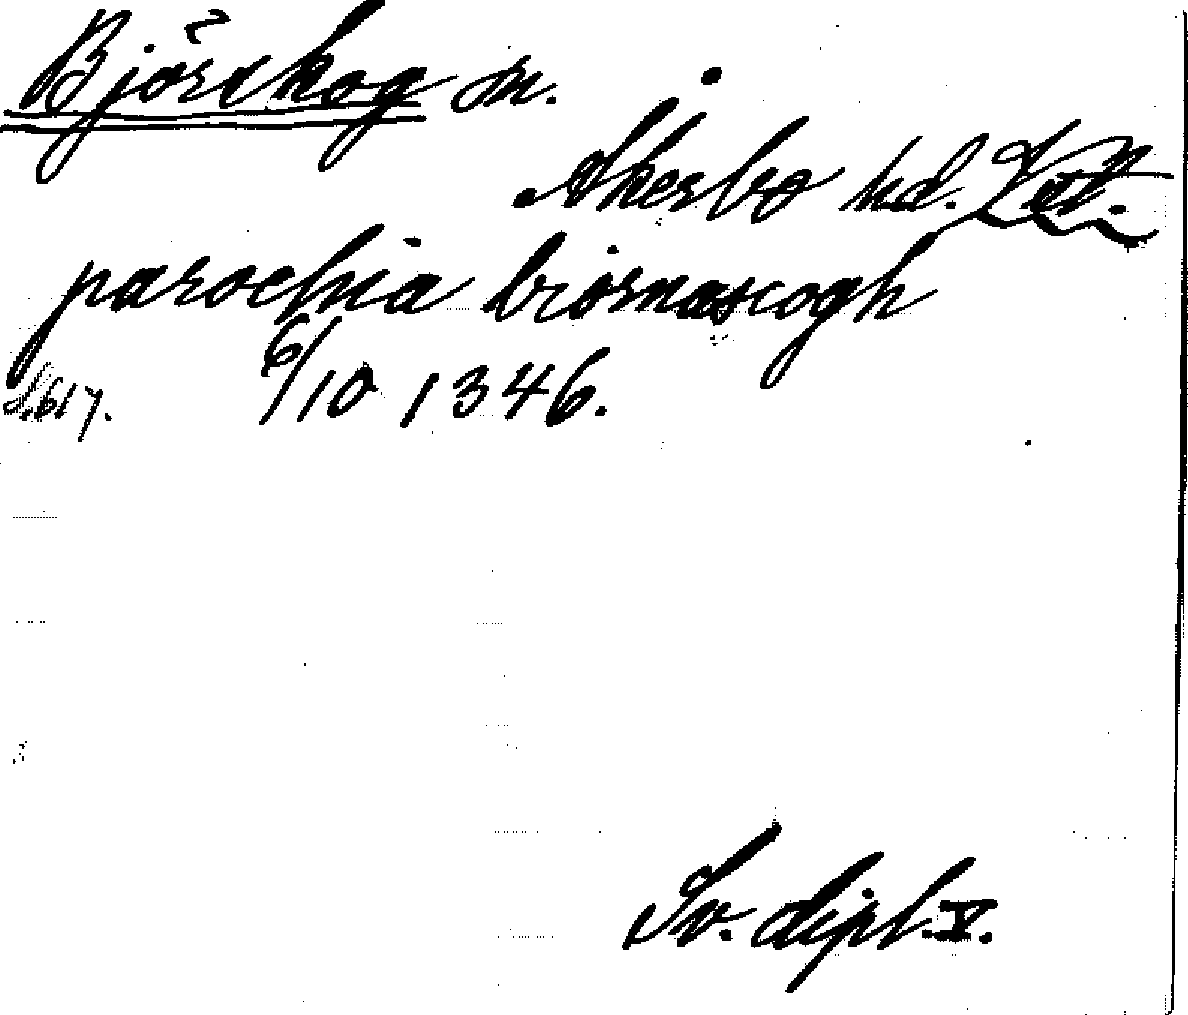 Björskog sn.
Åkerbo hd. Vstm.
parochia biornascogh
S. 617. 6/10 1346.
Sv. dipl. V.